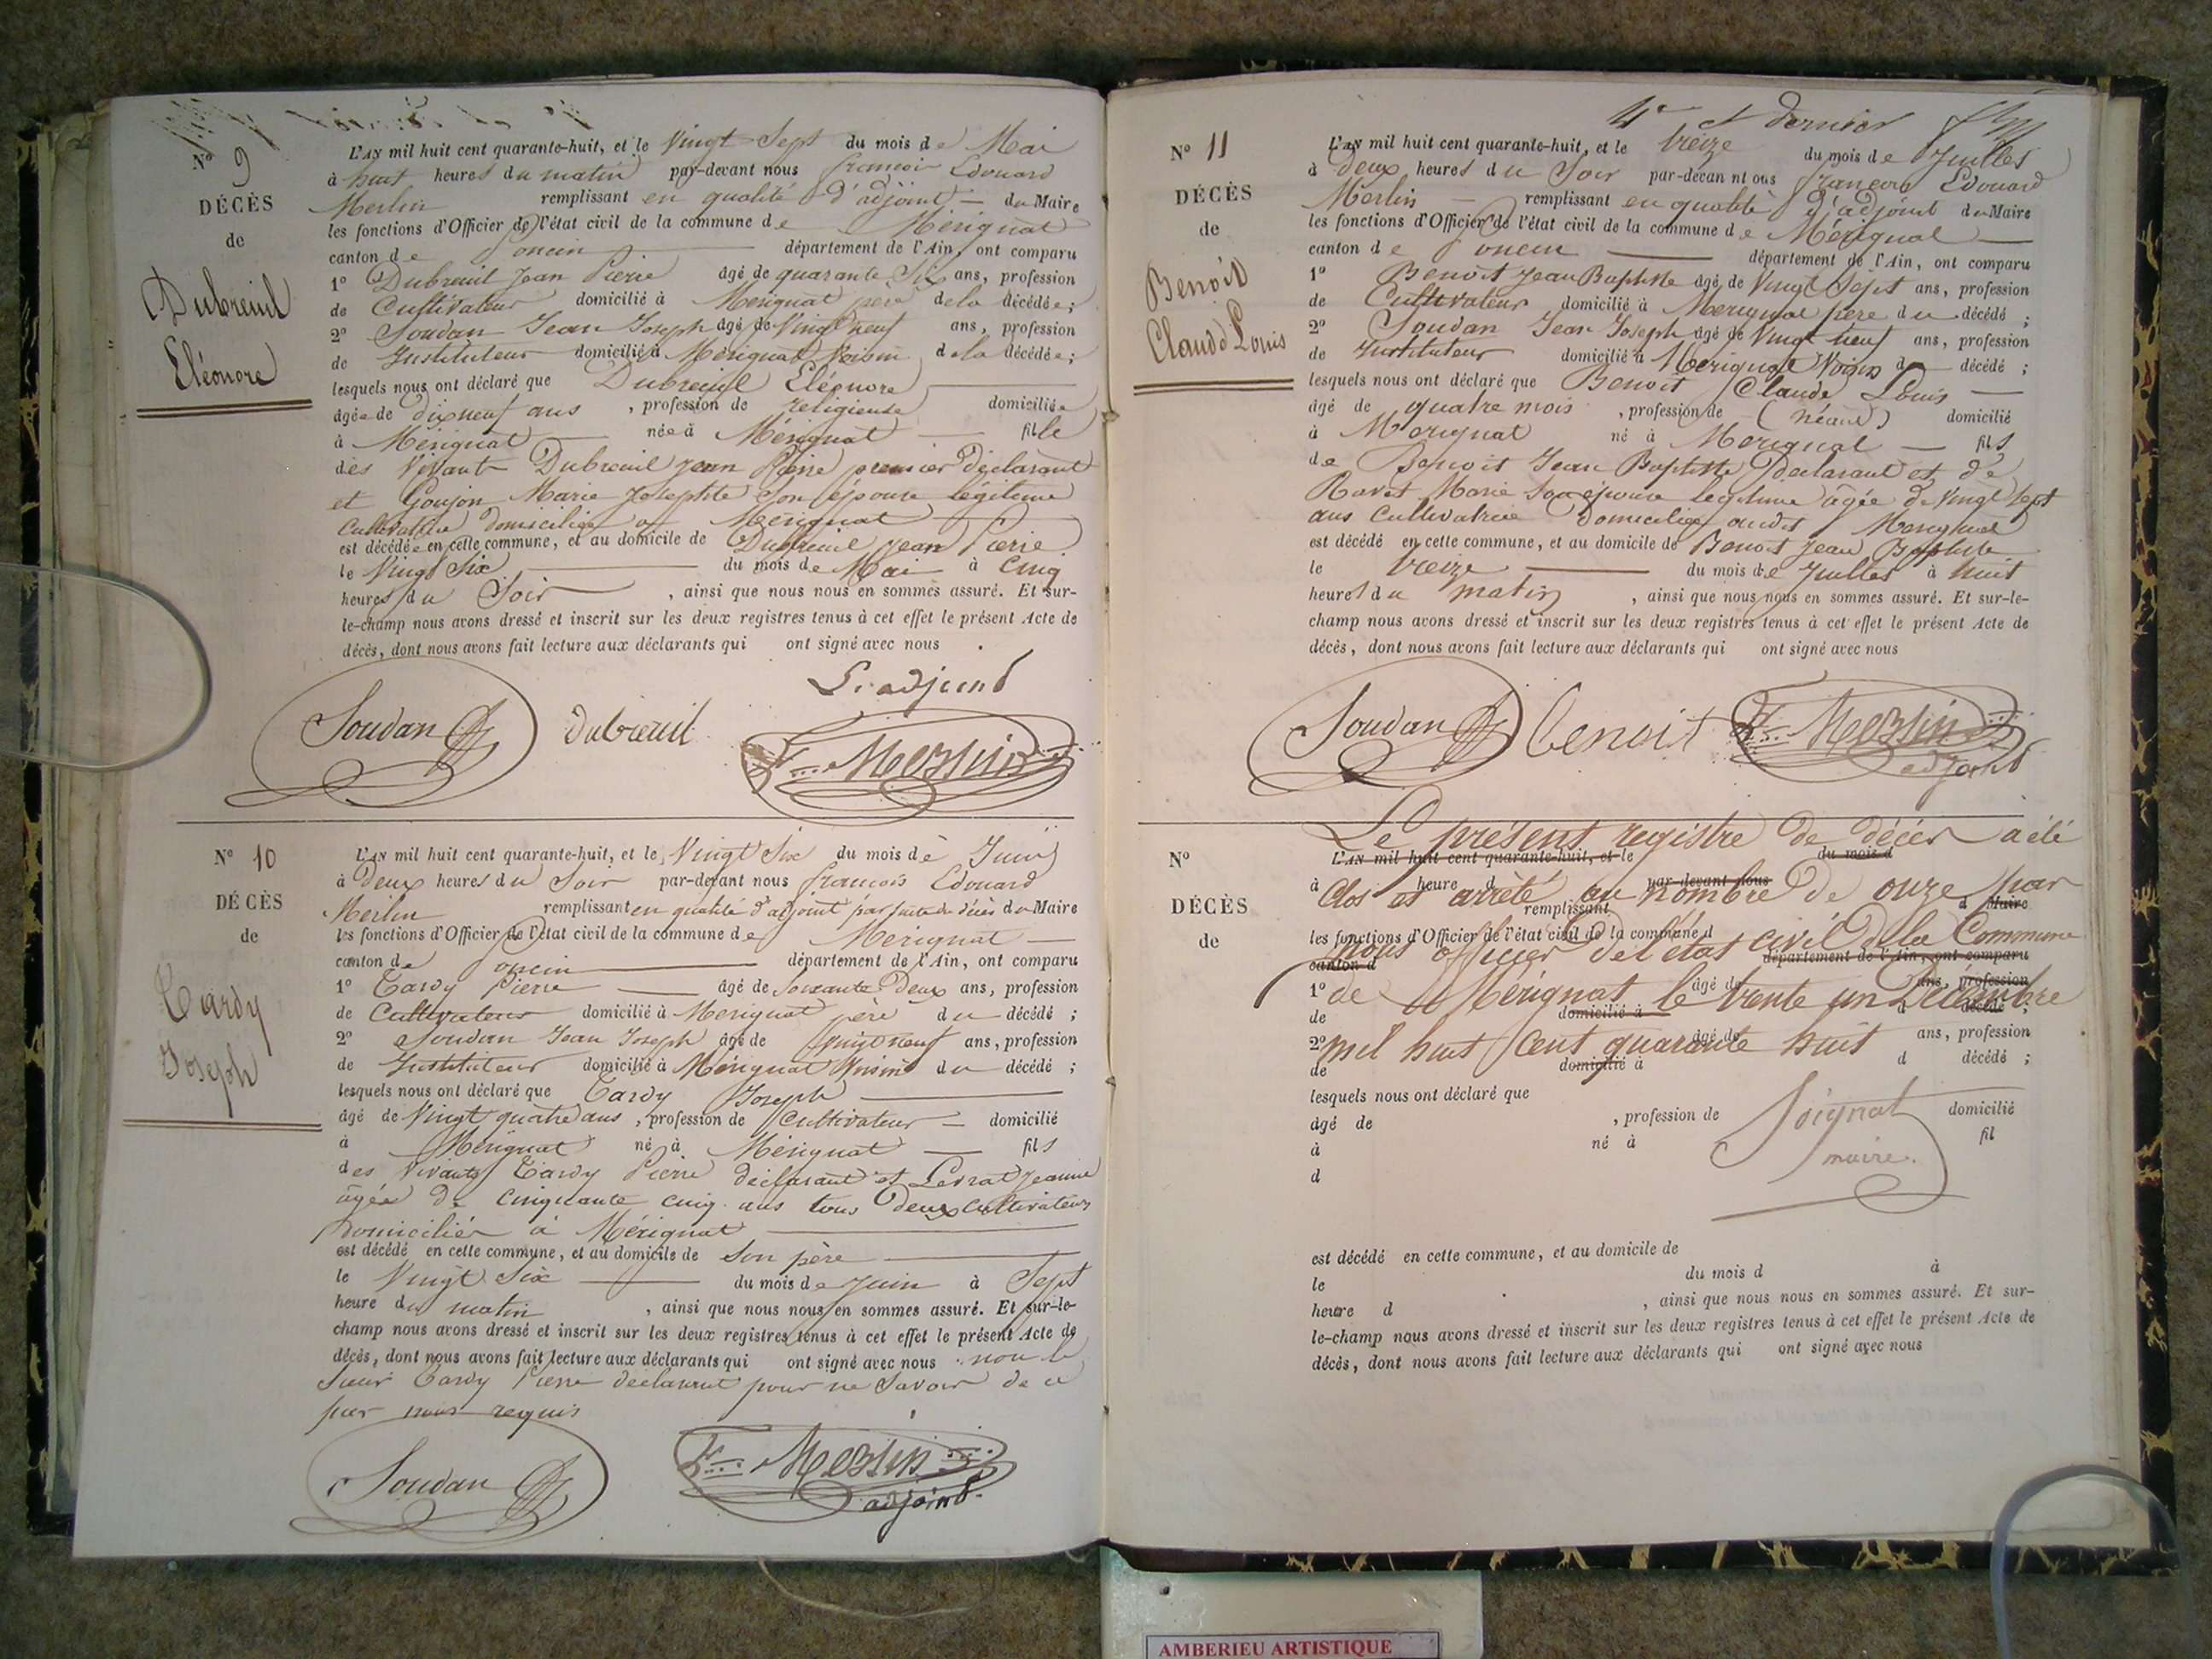 N° 9
DÉCÈS
de
Dubreuil
Eléonore
L'AN mil huit cent quarante-huit, et le Vingt Sept du mois de Mai
à huit heures du matin par-devant nous françois Edouard
Merlin remplissant en qualité d'adjoint du Maire
les fonctions d'Officier de l'état civil de la commune de Mérignat
canton de Poncin département de l'Ain, ont comparu
1° Dubreuil Jean Pierre âgé de quarante Six ans, profession
de Cultivateur domicilié à Merignat père de la décédée;
2° Soudan Jean Joseph âgé de Vingt neuf ans, profession
de Instituteur domicilié à Mérignat Voisin de la décédée;
lesquels nous ont déclaré que Dubreuil Eléonore
âgée de dix neuf ans , profession de religieuse domiciliée
à Mérignat née à Mérignat fille
des Vivants Dubreuil Jean Pierre premier déclarant
et Goujon Marie Josephte Son épouse légitime
Cultivatrice domiciliée à Mérignat
est décédée en cette commune, et au domicile de Dubreuil Jean Pierre
le Vingt Six du mois de Mai à Cinq
heures du Soir , ainsi que nous nous en sommes assuré. Et sur-
le-champ nous avons dressé et inscrit sur les deux registres tenus à cet effet le présent Acte de
décès, dont nous avons fait lecture aux déclarants qui ont signé avec nous
L. adjoint
Soudan dubreuil Merlin
N° 10
DÉCÈS
de
Tardy
Joseph
L'AN mil huit cent quarante-huit, et le Vingt Six du mois de Juin
à Deux heures du Soir par-devant nous francois Edouard
Merlin remplissant en qualité d'adjoint par suite du décès du Maire
les fonctions d'Officier de l'état civil de la commune de Merignat
canton de Poncin département de l'Ain, ont comparu
1° Tardy Pierre âgé de Soixante Deux ans, profession
de Cultivateur domicilié à Merignat père du décédé ;
2° Soudan Jean Joseph âgé de Vingt neuf ans, profession
de Instituteur domicilié à Mérignat Voisin du décédé ;
lesquels nous ont déclaré que Tardy Joseph
âgé de Vingt quatre ans , profession de Cultivateur domicilié
à Mérignat né à Mérignat fils
des Vivants Tardy Pierre déclarant et Levrat Jeanne
âgée de Cinquante cinq ans tous Deux Cultivateurs
Domiciliés à Mérignat
est décédé en cette commune, et au domicile de Son père
le Vingt Six du mois de Juin à Sept
heure du matin , ainsi que nous nous en sommes assuré. Et sur-le-
champ nous avons dressé et inscrit sur les deux registres tenus à cet effet le présent Acte de
décès, dont nous avons fait lecture aux déclarants qui ont signé avec nous non le
Sieur Tardy Pierre declarant pour ne Savoir de ce
par nous requis
Soudan Merlin
adjoint
4e et dernier
N° 11
DÉCÈS
de
Benoit
Claude Louis
L'AN mil huit cent quarante-huit, et le treize du mois de Juillet
à Deux heures du Soir par-devan nt ous françois Edouard
Merlin remplissant en qualité d'adjoint du Maire
les fonctions d'Officier de l'état civil de la commune de Mérignat
canton de Poncin département de l'Ain, ont comparu
1° Benoit Jean Baptiste âgé de Vingt Sept ans, profession
de Cultivateur domicilié à Merignat père du décédé ;
2° Soudan Jean Joseph âgé de Vingt neuf ans, profession
de Instituteur domicilié à Merignat Voisin d décédé ;
lesquels nous ont déclaré que Benoit Claude Louis
âgé de quatre mois , profession de (néant) domicilié
à Merignat né à Merignat fils
de Benoit Jean Baptiste Declarant et de
Ravet Marie Son épouse légitime âgée de Vingt Sept
ans Cultivatrice Domiciliée audit Merignat
est décédé en cette commune, et au domicile de Benoit Jean Baptiste
le treize du mois de Juillet à huit
heures du matin , ainsi que nous nous en sommes assuré. Et sur-le-
champ nous avons dressé et inscrit sur les deux registres tenus à cet effet le présent Acte de
décès, dont nous avons fait lecture aux déclarants qui ont signé avec nous
Soudan benoit Merlin
adjoint
N°
DÉCÈS
de
Le présent registre de décès a été
L'AN mil huit cent quarante-huit, et le du mois d
clos et arrêté au nombre de onze par
à heure d par-devant nous
remplissant d Maire
les fonctions d'Officier de l'état civil de la commune d
nous officier de l'état civil de la Commune
canton d département de l'Ain, ont comparu
1° âgé de ans, profession
de Mérignat le trente un Décembre
de domicilié à d décédé ;
2° âgé de ans, profession
mil huit Cent quarante huit
de domicilié à d décédé ;
lesquels nous ont déclaré que
âgé de , profession de domicilié
à né à fil
d
Soignat
maire.
est décédé en cette commune, et au domicile de
le du mois d à
heure d , ainsi que nous nous en sommes assuré. Et sur-
le-champ nous avons dressé et inscrit sur les deux registres tenus à cet effet le présent Acte de
décès, dont nous avons fait lecture aux déclarants qui ont signé avec nous
AMBERIEU ARTISTIQUE